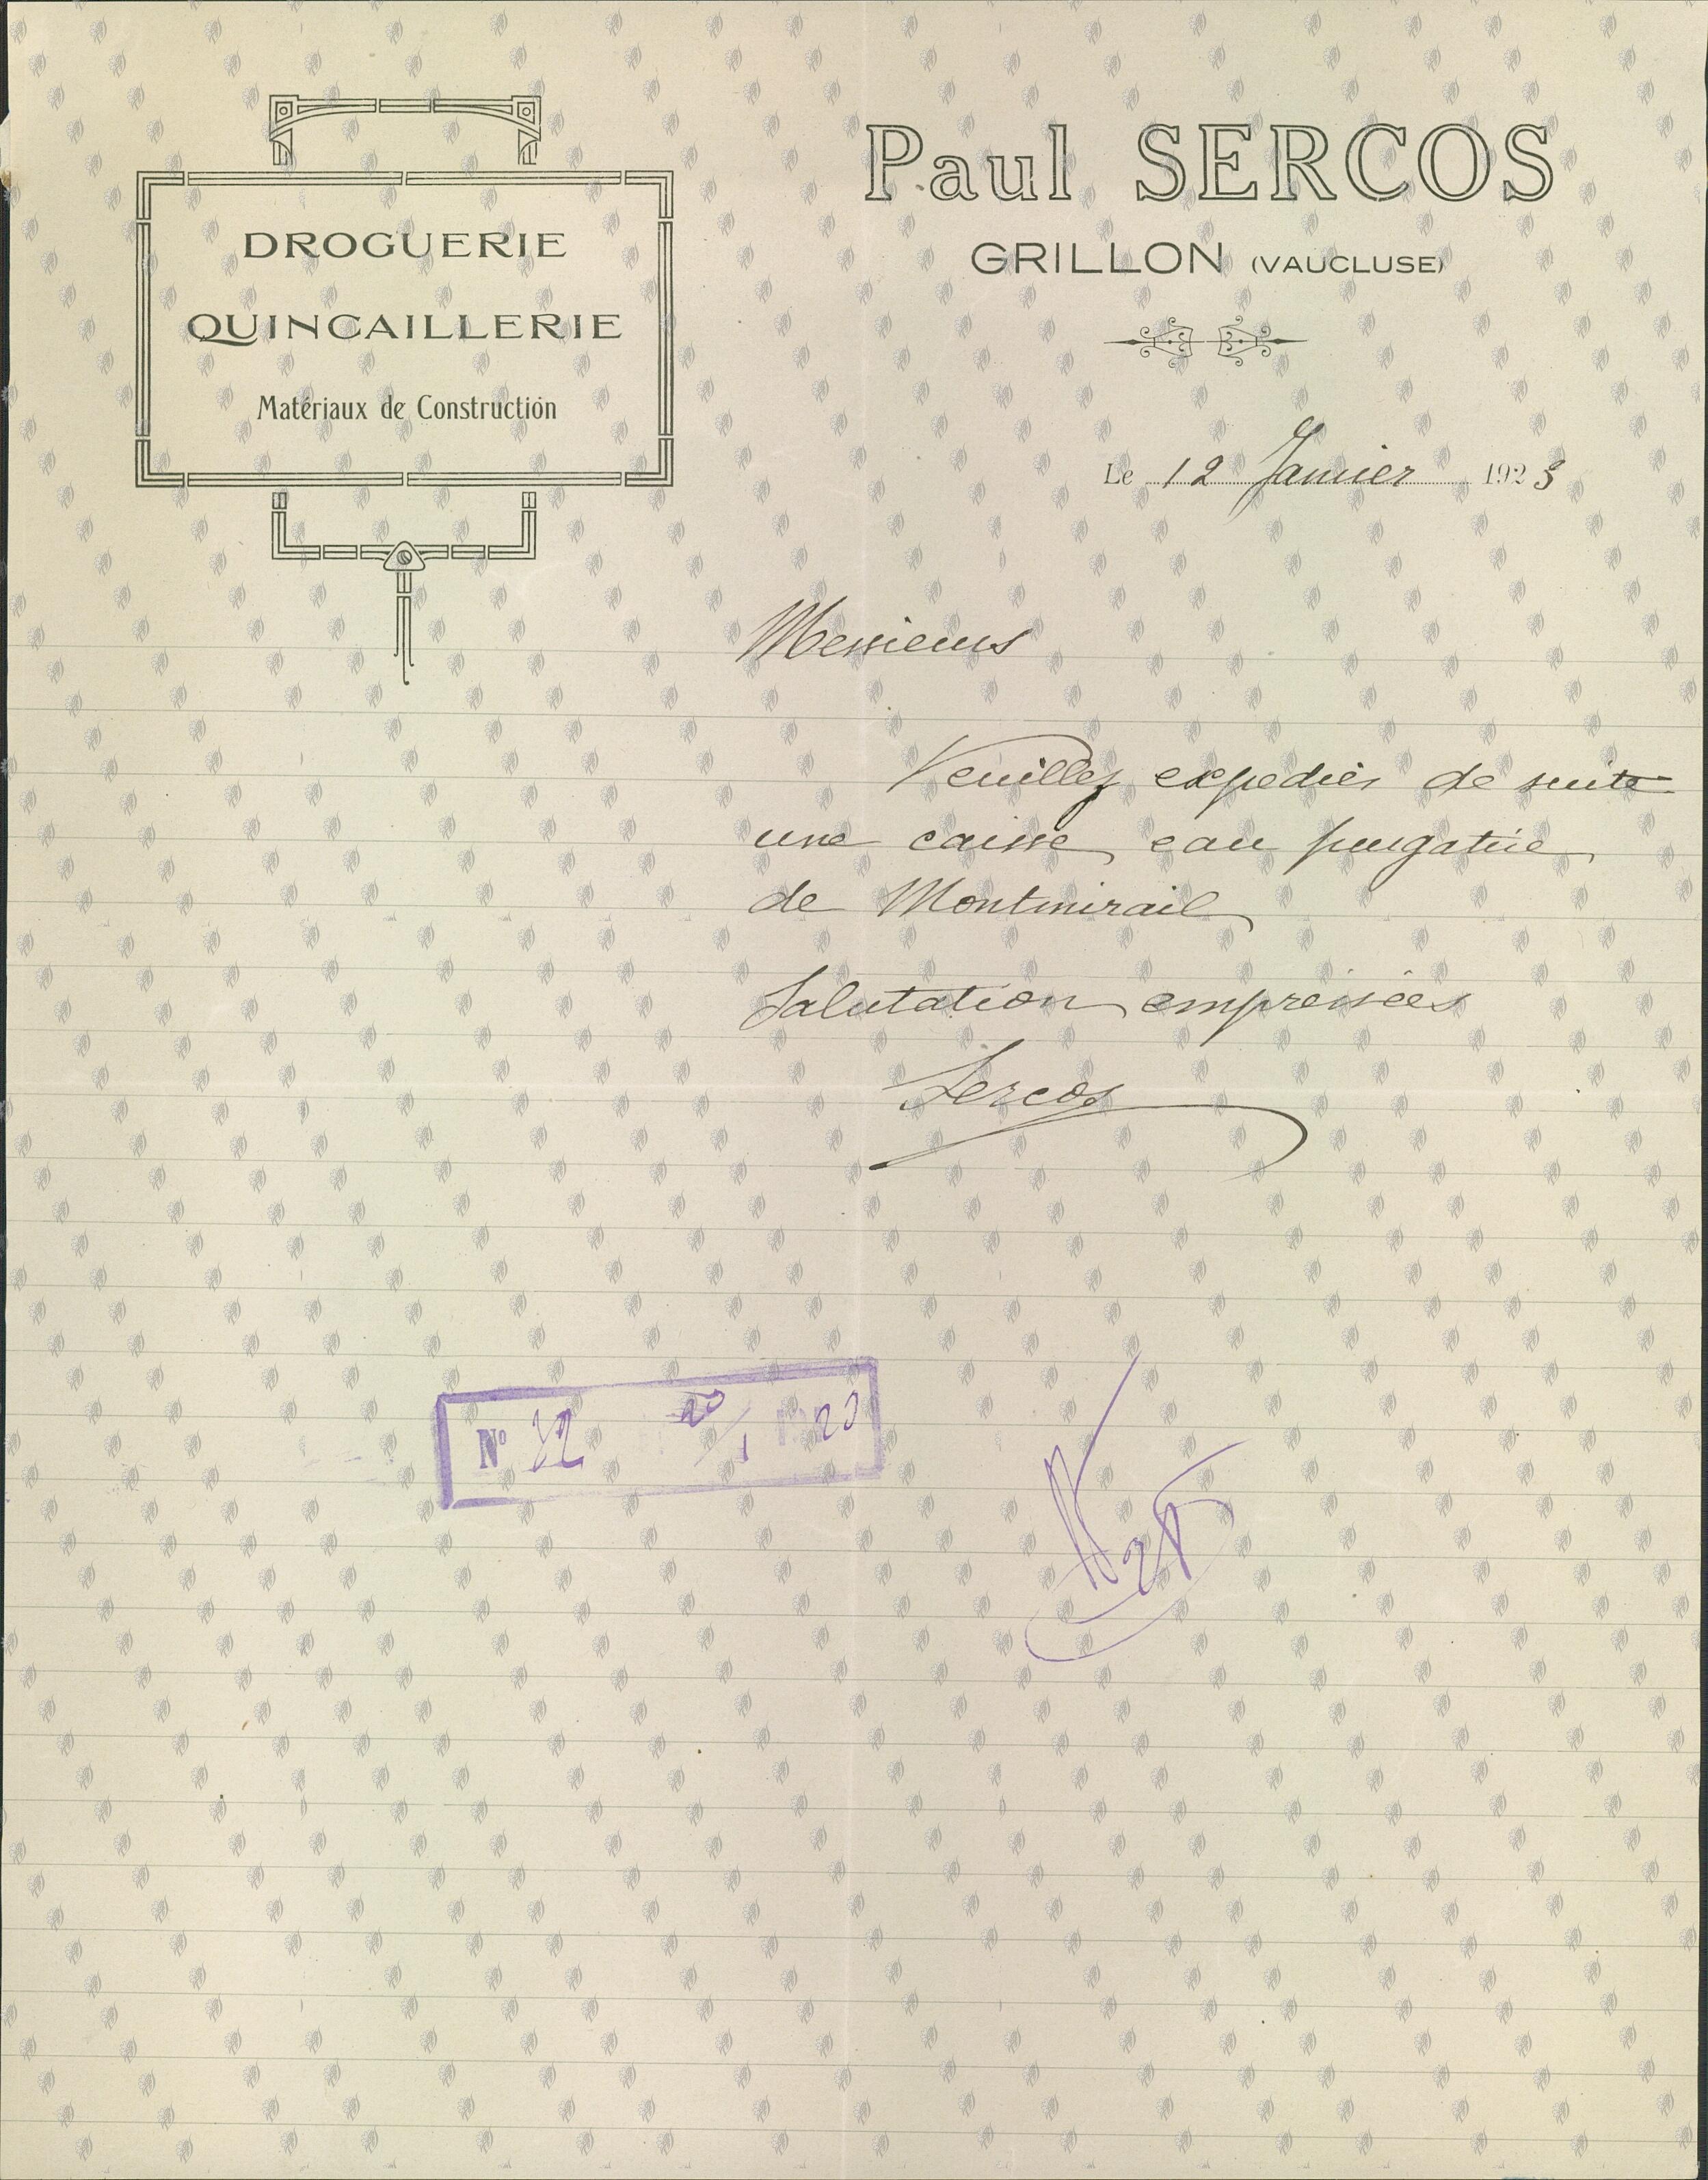 DROGUERIE
QUINCAILLERIE
Matériaux de Construction
Paul SERCOS
GRILLON (VAUCLUSE)
Le 12 Janvier 1923
Messieurs
Veuillez expedier de suite
une caisse eau purgative
de Montmirail
Salutation empressées
Sercos
N° 32